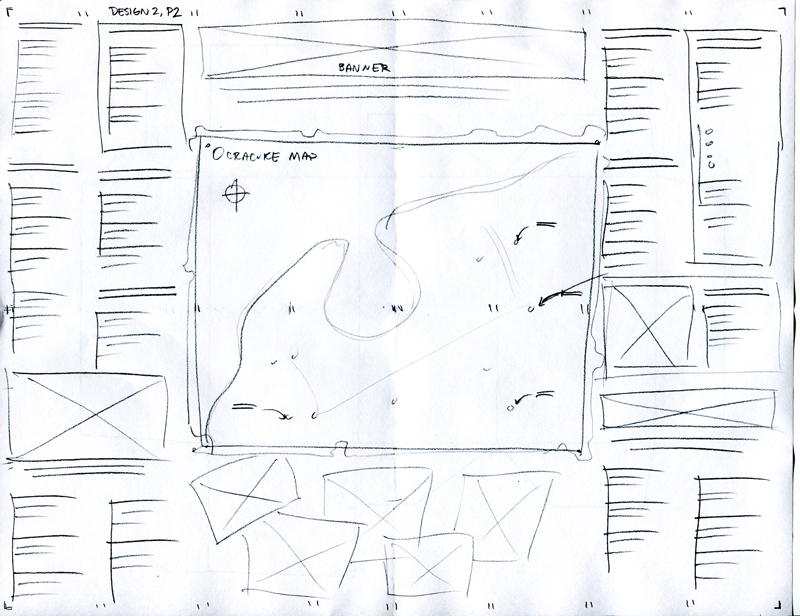 DESIGN 2, P2
BANNER
OCRACOKE MAP